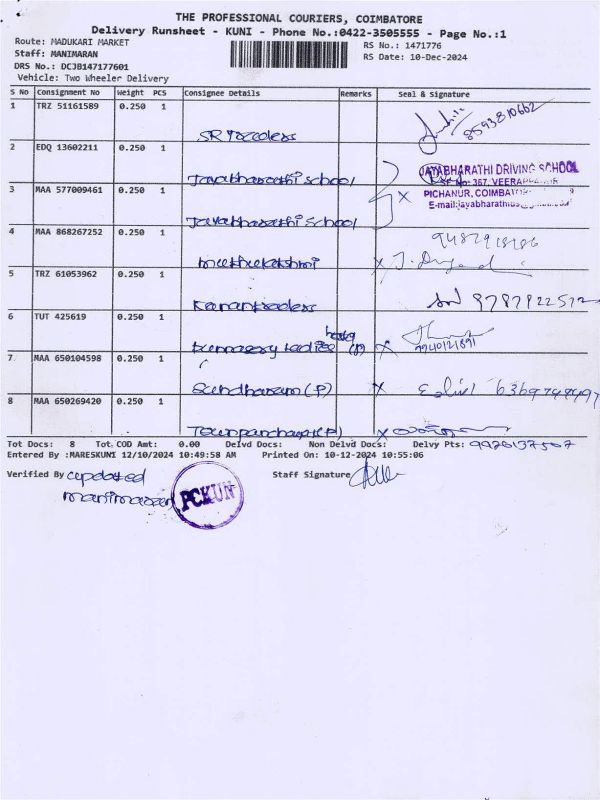 THE PROFESSIONAL COURIERS, COIMBATORE
Delivery Runsheet - KUNI - Phone No.:0422-3505555 - Page No.:1
Route: MADUKARI MARKET
RS No.: 1471776
Staff: MANIMARAN
RS Date: 10-Dec-2024
DRS No.: DCJB147177601
Vehicle: Two Wheeler Delivery
S No Consignment No Weight PCS Consignee Details Remarks Seal & Signature
1 TRZ 51161589 0.250 1 SR Traders 8593810662
2 EDQ 13602211 0.250 1 Jayabharathi school
JAYABHARATHI DRIVING SCHOOL
No: 367, VEERAPPA
3 MAA 577009461 0.250 1 Jayabharathi school X
PICHANUR, COIMBATO
E-mail:jayabharathi
4 MAA 868267252 0.250 1 muthulakshmi X
5 TRZ 61053962 0.250 1 Kanantraders
6 TUT 425619 0.250 1 ladies (P) X 9940121891
7 MAA 650104598 0.250 1 Sundharam (P) X
8 MAA 650269420 0.250 1 Townpanchayat (P) X
Tot Docs: 8 Tot COD Amt: 0.00 Delvd Docs: Non Delvd Docs: Delvy Pts:
Entered By :MARESKUNI 12/10/2024 10:49:58 AM Printed On: 10-12-2024 10:55:06
Verified By updated Staff Signature
manimaran
PCKUN